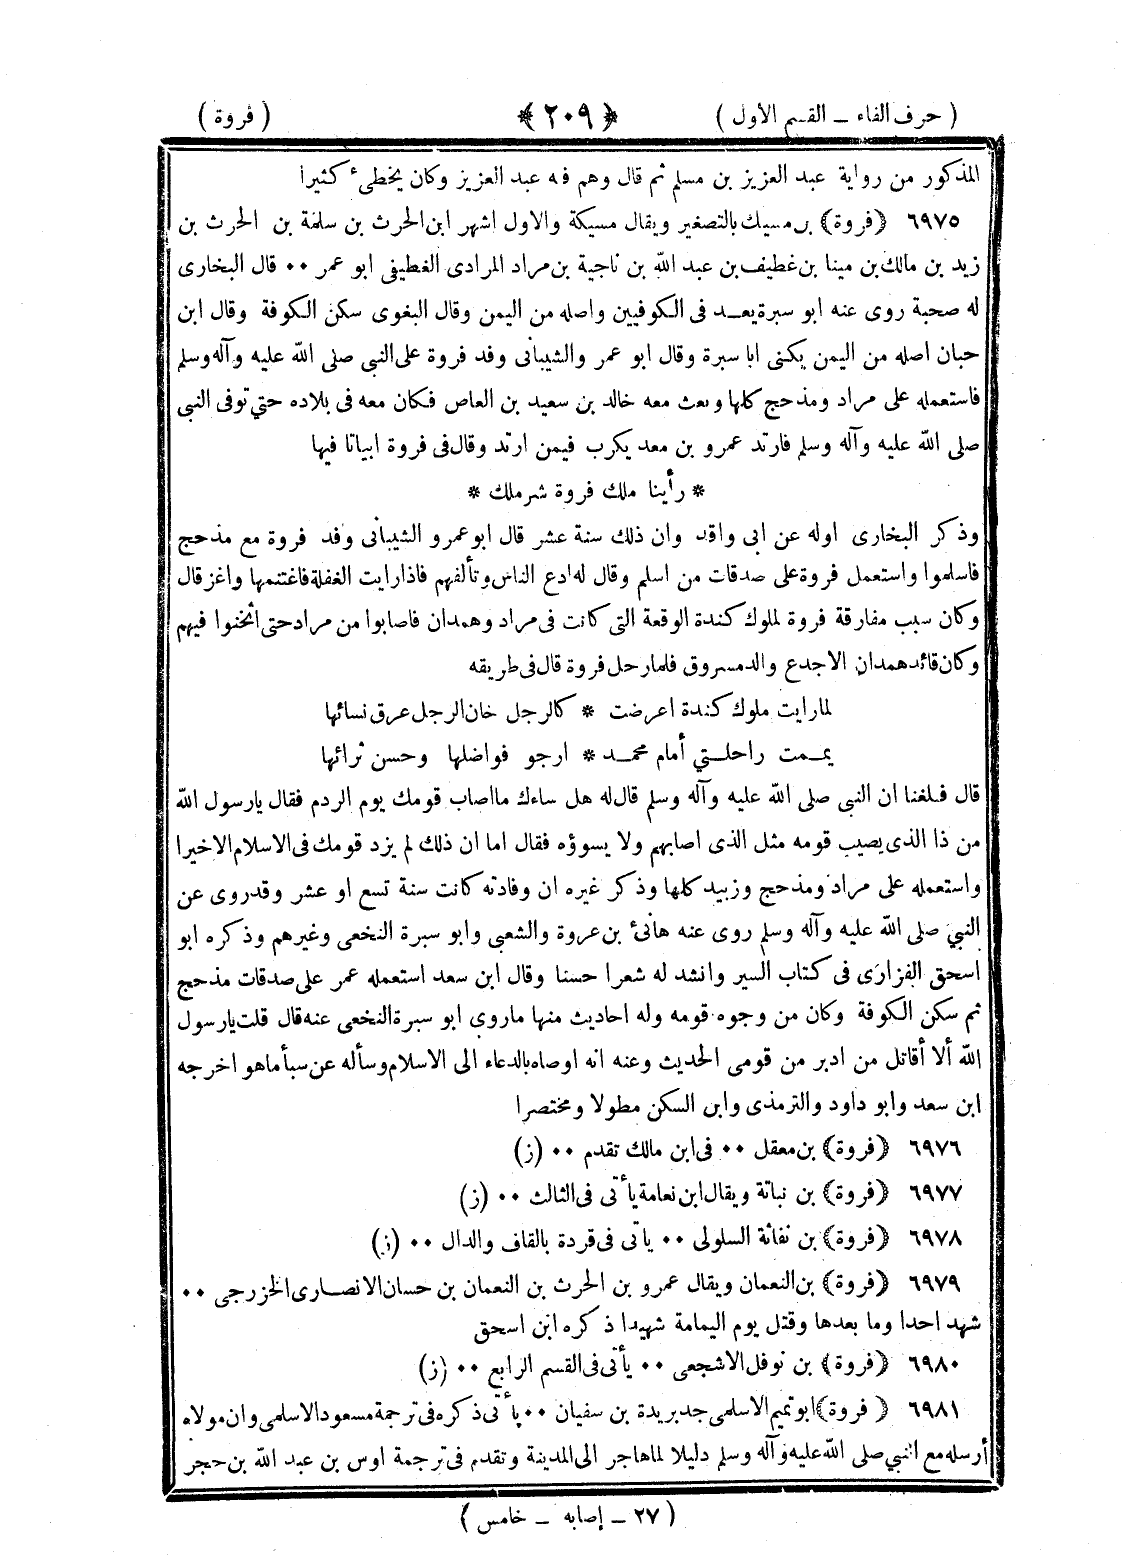 ( حرف الفاء ـ القسم الأول ) ﴿ ٢٠٩ ﴾ ( فروة )
المذكور من رواية عبد العزيز بن مسلم ثم قال وهم فيه عبد العزيز وكان يخطئ كثيرا
٦٩٧٥ ﴿فروة﴾ بن مسيك بالتصغير ويقال مسيكة والاول اشهر ابن الحرث بن سلمة بن الحرث بن
زيد بن مالك بن مينا بن غطيف بن عبد الله بن ناجية بن مراد المرادى الغطيفى ابو عمر ٠٠ قال البخارى
له صحبة روى عنه ابو سبرة يعد فى الكوفيين واصله من اليمن وقال البغوى سكن الكوفة وقال ابن
حبان اصله من اليمن يكنى ابا سبرة وقال ابو عمر والشيبانى وفد فروة على النبي صلى الله عليه وآله وسلم
فاستعمله على مراد ومذحج كلها وبعث معه خالد بن سعيد بن العاص فكان معه فى بلاده حتي توفى النبى
صلى الله عليه وآله وسلم فارتد عمرو بن معد يكرب فيمن ارتد وقال فى فروة ابياتا فيها
* رأينا ملك فروة شر ملك *
وذكر البخارى اوله عن ابى واقد وان ذلك سنة عشر قال ابو عمرو الشيبانى وفد فروة مع مذحج
فاسلموا واستعمل فروة على صدقات من اسلم وقال له ادع الناس وتألفهم فاذا رايت الغفلة فاغتنمها واغز قال
وكان سبب مفارقة فروة لملوك كندة الوقعة التى كانت فى مراد وهمدان فاصابوا من مراد حتى أثخنوا فيهم
وكان قائد همدان الاجدع والد مسروق فلما رحل فروة قال فى طريقه
لما رايت ملوك كندة اعرضت * كالرجل خان الرجل عرق نسائها
يممت راحلتي أمام محمد * ارجو فواضلها وحسن ثرائها
قال فبلغنا ان النبي صلى الله عليه وآله وسلم قال له هل ساءك ما اصاب قومك يوم الردم فقال يا رسول الله
من ذا الذى يصيب قومه مثل الذى اصابهم ولا يسوؤه فقال اما ان ذلك لم يزد قومك فى الاسلام الا خيرا
واستعمله على مراد ومذحج وزبيد كلها وذكر غيره ان وفادته كانت سنة تسع او عشر وقد روى عن
النبي صلى الله عليه وآله وسلم روى عنه هانئ بن عروة والشعبى وابو سبرة النخعى وغيرهم وذكره ابو
اسحق الفزارى فى كتاب السير وانشد له شعرا حسنا وقال ابن سعد استعمله عمر على صدقات مذحج
ثم سكن الكوفة وكان من وجوه قومه وله احاديث منها ما روى ابو سبرة النخعى عنه قال قلت يا رسول
الله ألا أقاتل من ادبر من قومى الحديث وعنه انه اوصاه بالدعاء الى الاسلام وسأله عن سبأ ما هو اخرجه
ابن سعد وابو داود والترمذى وابن السكن مطولا ومختصرا
٦٩٧٦ ﴿فروة﴾ بن معقل ٠٠ فى ابن مالك تقدم ٠٠ (ز)
٦٩٧٧ ﴿فروة﴾ بن نباتة ويقال ابن نعامة يأتى فى الثالث ٠٠ (ز)
٦٩٧٨ ﴿فروة﴾ بن نفاثة السلولى ٠٠ يأتى فى قردة بالقاف والدال ٠٠ (ز)
٦٩٧٩ ﴿فروة﴾ بن النعمان ويقال عمرو بن الحرث بن النعمان بن حسان الانصارى الخزرجى ٠٠
شهد احدا وما بعدها وقتل يوم اليمامة شهيدا ذكره ابن اسحق
٦٩٨٠ ﴿فروة﴾ بن نوفل الاشجعى ٠٠ يأتى فى القسم الرابع ٠٠ (ز)
٦٩٨١ ﴿فروة﴾ ابو تميم الاسلمى جد بريدة بن سفيان ٠٠ يأتى ذكره فى ترجمة مسعود الاسلمى وان مولاه
أرسله مع النبي صلى الله عليه وآله وسلم دليلا لما هاجر الى المدينة وتقدم فى ترجمة اوس بن عبد الله بن حجر
( ٢٧ ـ إصابه ـ خامس )